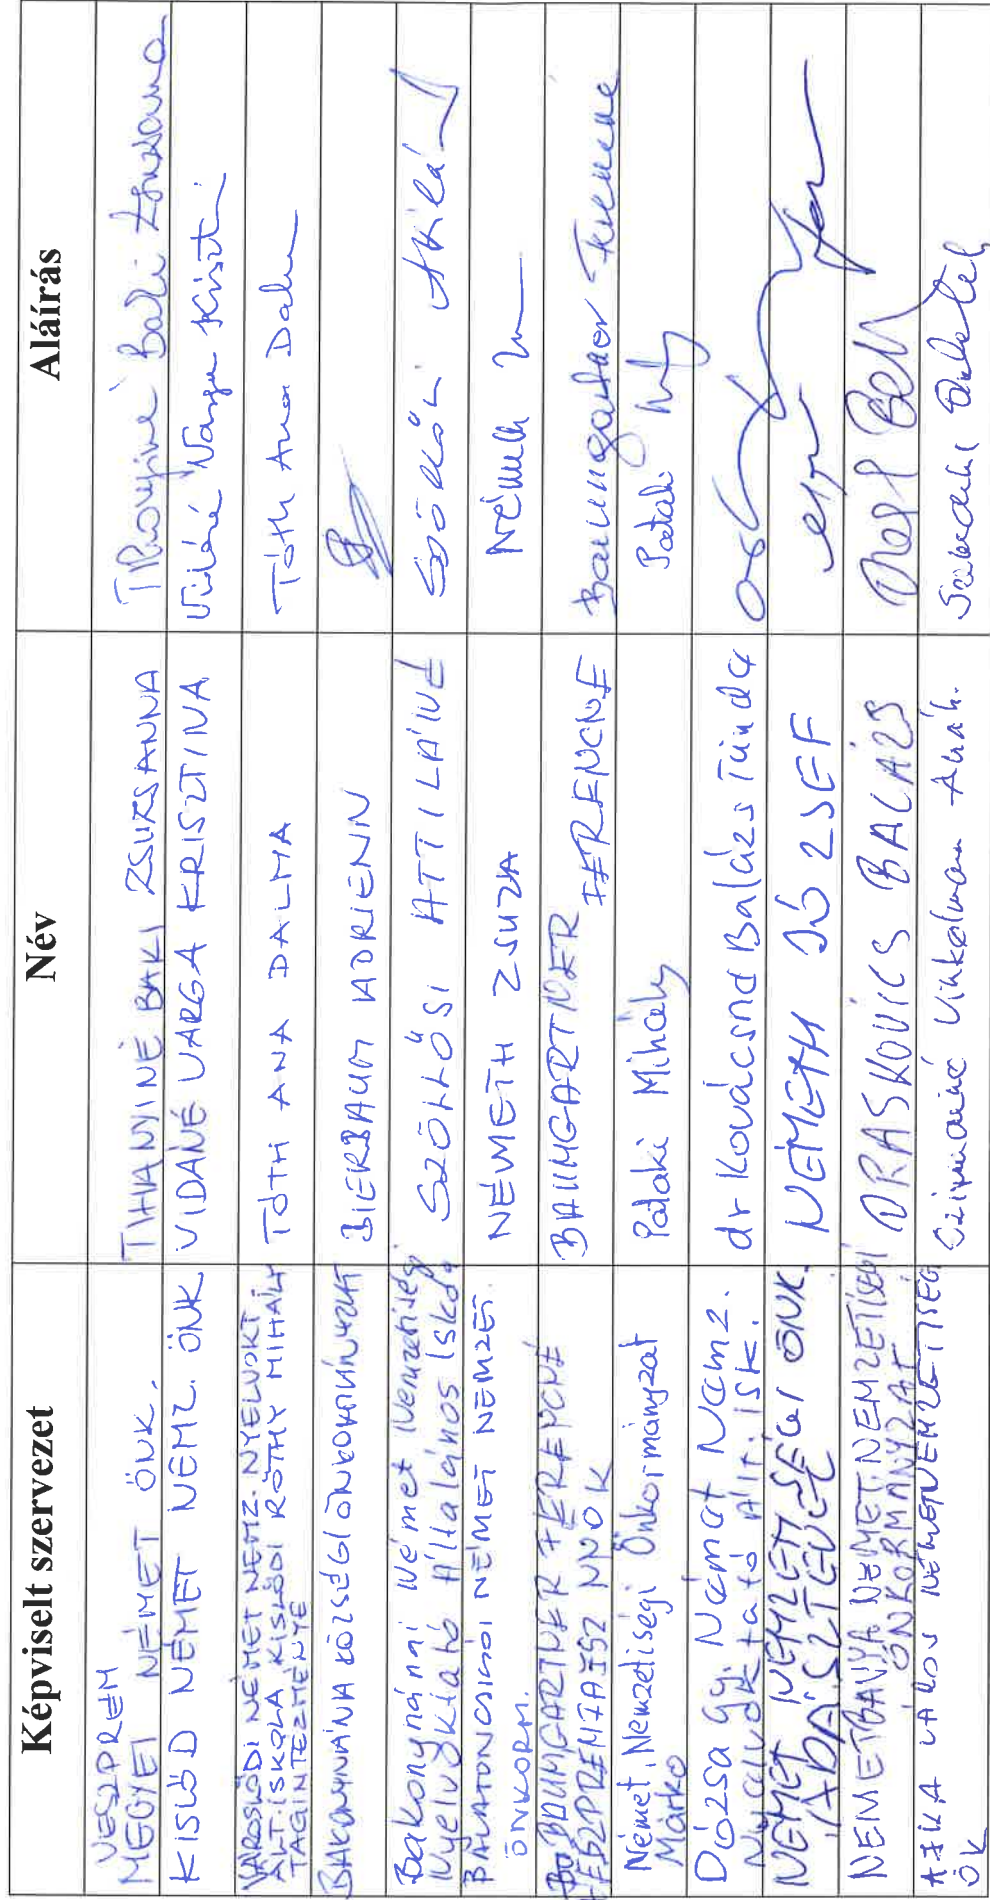 Képviselt szervezet Név Aláírás
VESZPRÉM
MEGYEI NÉMET ÖNK. TIHANYINÉ BAKI ZSUZSANNA Tihanyiné Baki Zsuzsanna
KISLŐD NÉMET NEMZ. ÖNK. VIDÁNÉ VARGA KRISZTINA Vidáné Varga Kriszti
VÁROSLŐDI NÉMET NEMZ. NYELVOKT.
ÁLT. ISKOLA KISLŐDI RŐTHY MIHÁLY
TAGINTÉZMÉNYE TÓTH ANA DALMA Tóth Ana Dalma
BAKONYNÁNA KÖZSÉGI ÖNKORMÁNYZAT BIERBAUM ADRIENN
Bakonynánai Német Nemzetiségi
Nyelvoktató Általános Iskola SZÖLLŐSI ATTILÁNÉ
BALATONCSICSÓI NÉMET NEMZET.
ÖNKORM. NÉMETH ZSUZSA Németh
BAUMGARTNER FERENCNÉ
VESZPRÉMFAJSZ NNÖK BAUMGARTNER
FERENCNÉ Baumgartner Ferencné
Német Nemzetiségi Önkormányzat
Márkó Pataki Mihály Pataki
Dózsa Gy. Német Nemz.
Nyelvokt. tató Ált. Isk. dr Kovácsné Balázs Tünde
NÉMET NEMZETISÉGI ÖNK.
NÉMETH JÓZSEF
NÉMETBÁNYA NÉMET NEMZETISÉGI
ÖNKORMÁNYZAT DRASKOVICS BALÁZS
AJKA VÁROS NÉMET NEMZETISÉG
ÖK